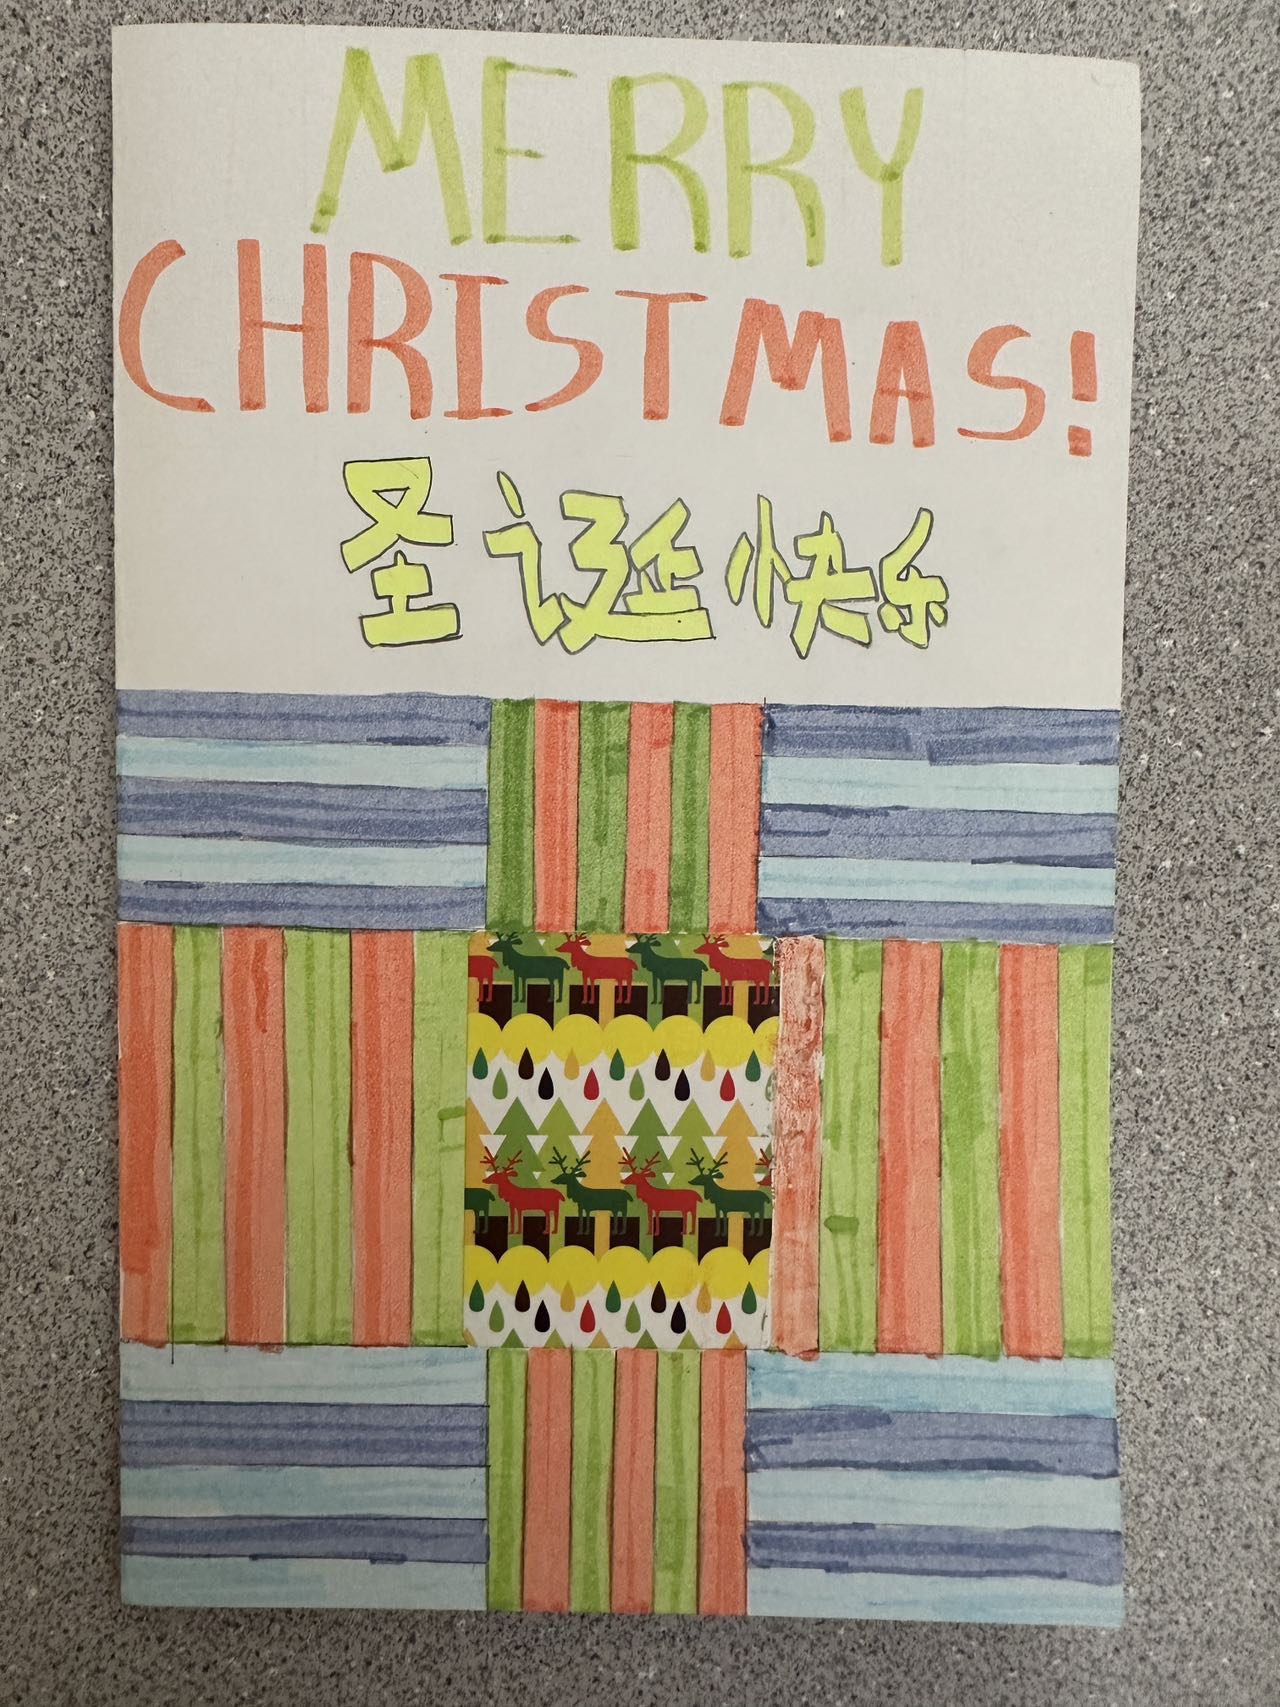 MERRY
CHRISTMAS!
圣诞快乐